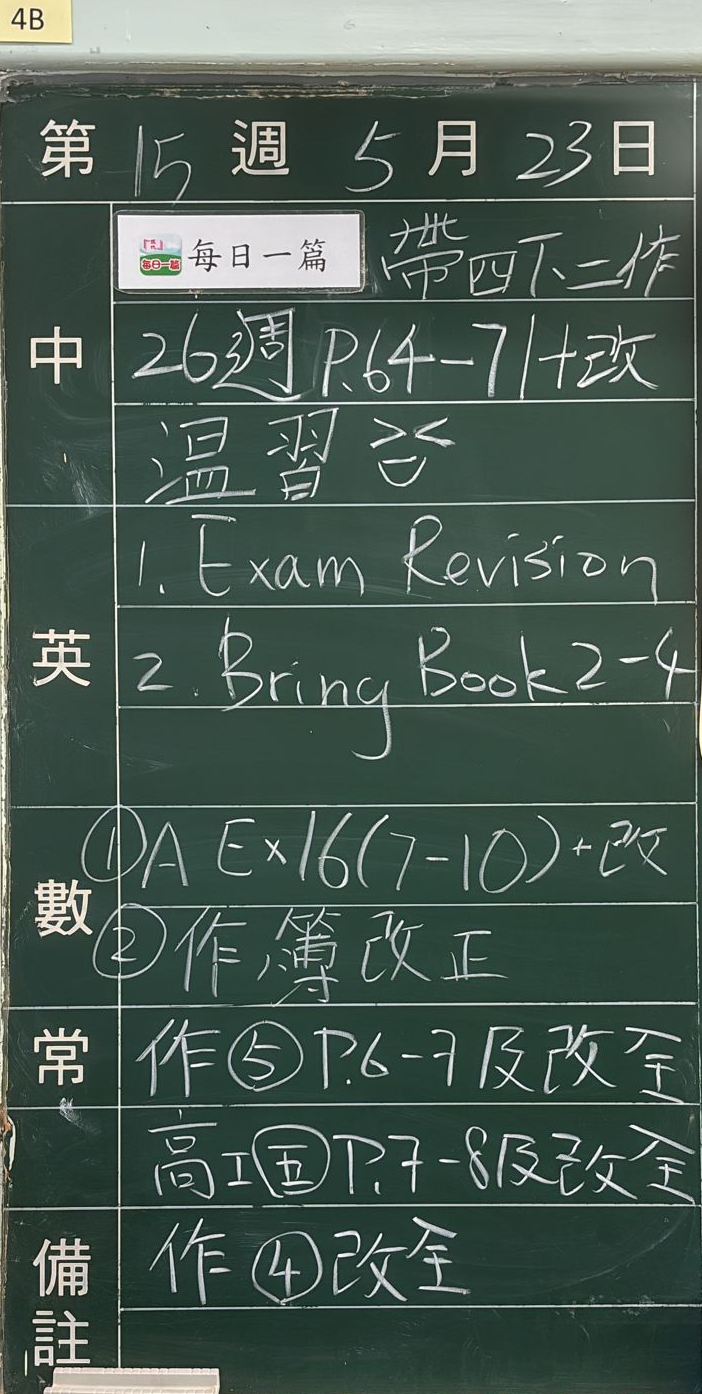 4B
第 15 週 5 月 23 日
中
每日一篇 每日一篇 帶四下二作
26週 P.64-71+改
温習
英
1. Exam Revision
2. Bring Book 2-4
數
① A Ex16(7-10)+改
② 作簿改正
常
作⑤P.6-7及改全
高工㊄P.7-8及改全
備註
作④改全